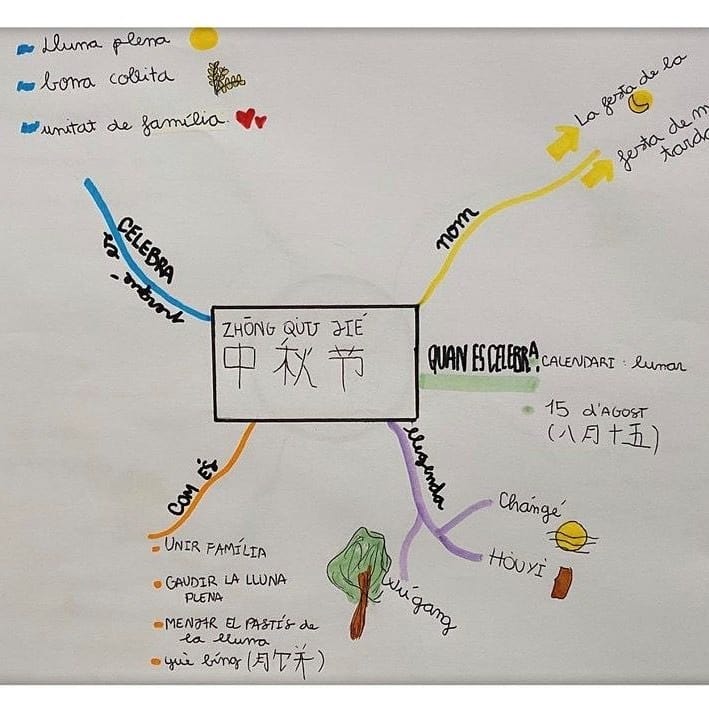 Lluna plena
bona collita
unitat de família
La festa de la
festa de m
tarda
nom
CELEBRA
es
perquè
ZHŌNG QIŪ JIÉ
中秋节
QUAN ES CELEBRA
CALENDARI: lunar
15 d'AGOST
(八月十五)
llegenda
Chángé
HÒUYÌ
Wúgang
COM ÉS
UNIR FAMÍLIA
GAUDIR LA LLUNA
PLENA
MENJAR EL PASTÍS de
la lluna
yuè bing